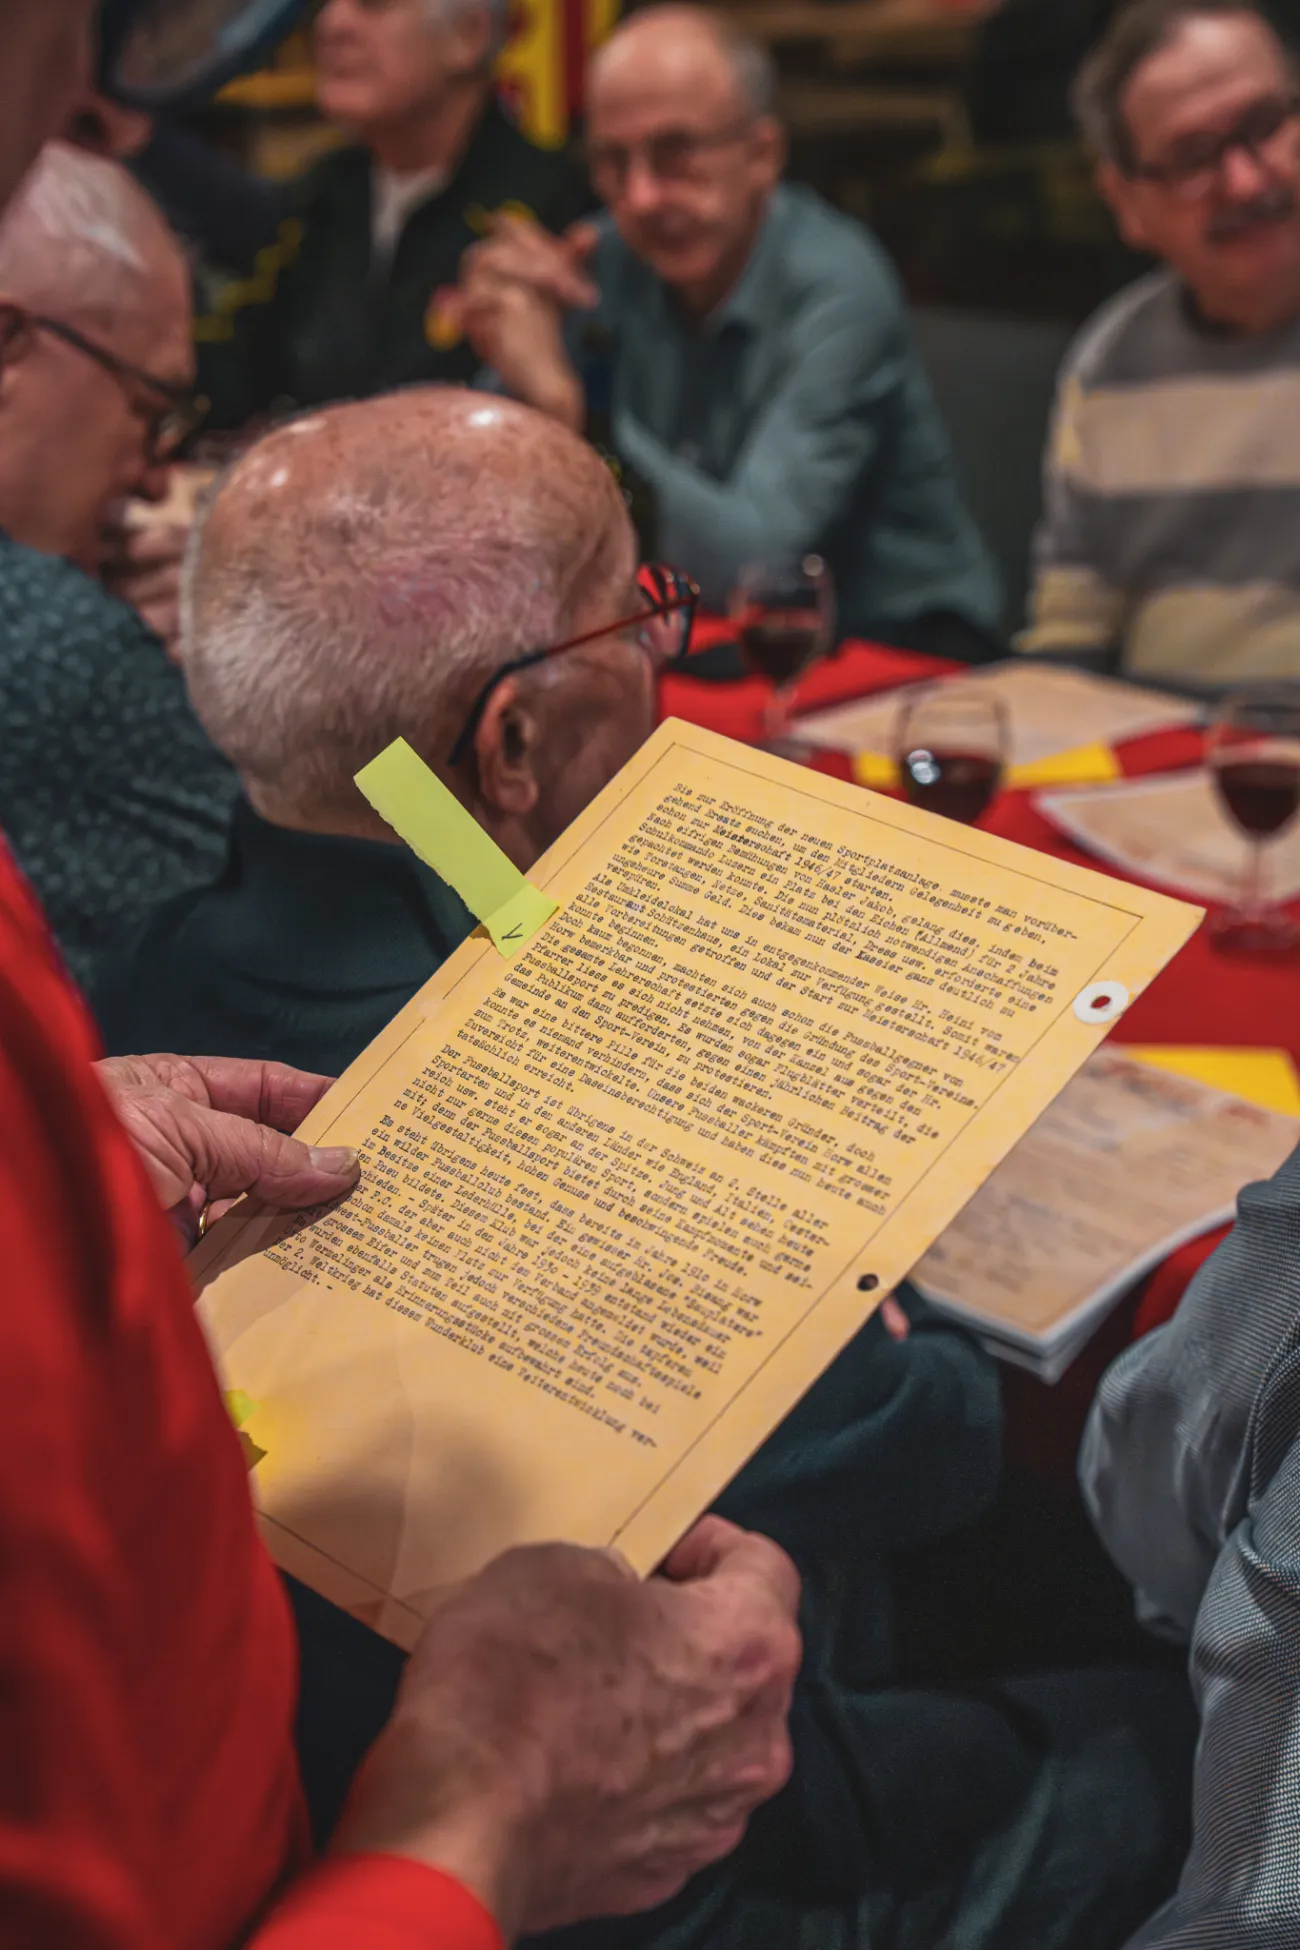 Bis zur Eröffnung der neuen Sportplatzanlage, musste man vorüber-
gehend Ersatz suchen, um den Mitgliedern Gelegenheit zu geben,
schon zur Meisterschaft 1946/47 starten.
Nach eifrigen Bemühungen von Hasler Jakob, gelang dies, indem beim
Schulkommando Luzern ein Platz bei den Eichen (Allmend) für 2 Jahre
gepachtet werden konnte. Die nun plötzlich notwendigen Anschaffungen
wie Torstangen, Netze, Sanitätsmaterial, Dress usw. erforderte eine
ungeheure Summe Geld. Dies bekam nun der Kassier ganz deutlich zu
verspüren.
Als Umkleidelokal hat uns in entgegenkommender Weise Hr. Heini vom
Restaurant Schützenhaus, ein Lokal zur Verfügung gestellt. Somit waren
alle Vorbereitungen getroffen und der Start zur Meisterschaft 1946/47
konnte beginnen.
Doch kaum begonnen, machten sich auch schon die Fussballgegner von
Horw bemerkbar und protestierten gegen die Gründung des Sport-Vereins.
Die gesamte Lehrerschaft setzte sich dagegen ein und sogar der Hr.
Pfarrer liess es sich nicht nehmen, von der Kanzel aus gegen den
Fussballsport zu predigen. Es wurden sogar Flugblätter verteilt, die
das Publikum dazu aufforderten, gegen einen jährlichen Beitrag der
Gemeinde an den Sport-Verein, zu protestieren.
Es war eine bittere Pille für die beiden wackeren Gründer, doch
konnte es niemand verhindern, dass sich der Sport-Verein Horw allen
zum Trotz, weiterentwickelte. Unsere Fussballer kämpften mit grosser
Zuversicht für eine Daseinsberechtigung und haben dies nun heute auch
tatsächlich erreicht.
Der Fussballsport ist übrigens in der Schweiz an 2. Stelle aller
Sportarten und in den anderen Länder wie England, Italien, Oester-
reich usw. steht er sogar an der Spitze. Jung und Alt sehen heute
nicht nur gerne diesen populären Sport, sondern spielen auch gerne
mit; denn der Fussballsport bietet durch seine Kampfmomente und sei-
ne Vielgestaltigkeit, hohen Genuss und beschwingende Freude.
Es steht übrigens heute fest, dass bereits im Jahre 1910 in Horw
ein wilder Fussballclub bestand. Ein gewisser Hr. Jos. Bisang war
im Besitze einer Lederhülle, bei der eine aufgeblasene "Sauplatere"
den Pneu bildete. Diesem Klub war jedoch keine lange Lebensdauer
schieden. - Später in den Jahre 1930 - 1939 entstand wieder ein
F.C. der aber auch nicht dem Verband angemeldet wurde, weil
schon damals keinen Platz zur Verfügung hatte. Die tapferen
west-Fussballer trugen jedoch verschiedene Freundschaftsspiele
grossem Eifer und zum Teil auch mit grossem Erfolg aus.
wurden ebenfalls Statuten aufgestellt, welche heute noch bei
Wermelinger als Erinnerungsstücke aufbewahrt sind.
er 2. Weltkrieg hat diesem Wunderklub eine Weiterentwicklung ver-
unmöglicht. -